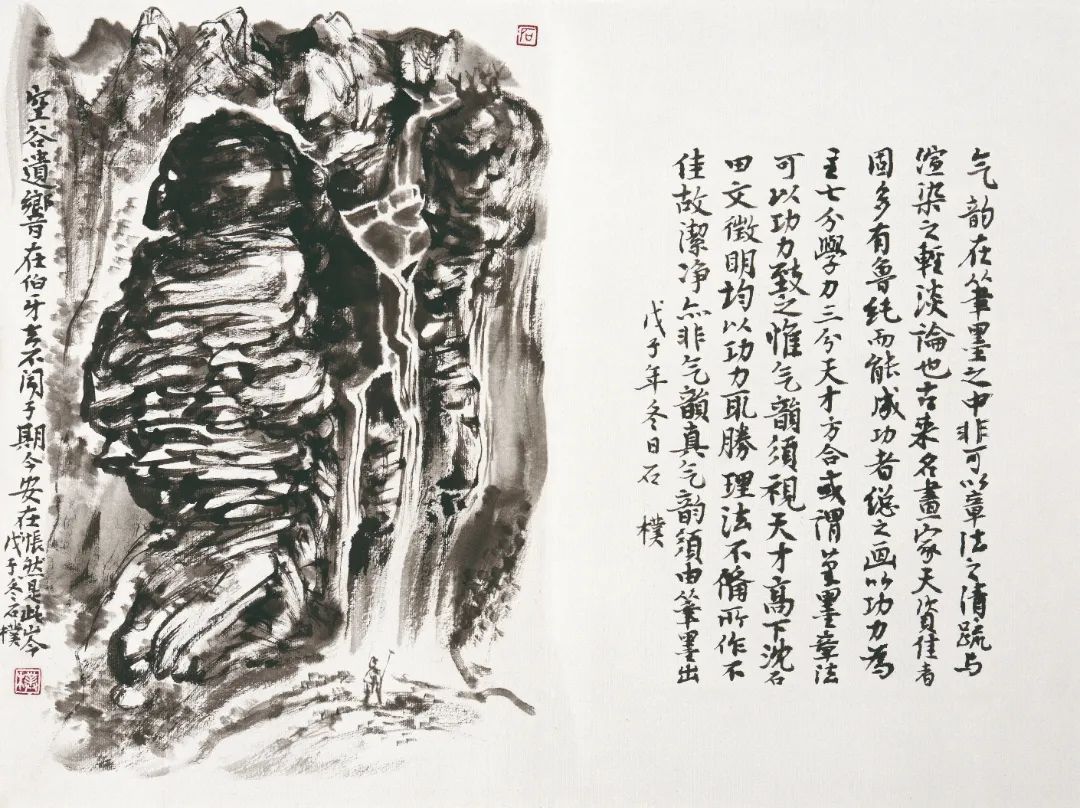 气韵在筆墨之中非可以章法之清疏与
渲染之輕淡論也古来名畫家天資佳者
固多有鲁純而能成功者總之画以功力為
主七分學力三分天才方合或謂筆墨章法
可以功力致之惟气韻須視天才高下沈石
田文徵明均以功力取勝理法不備所作不
佳故潔净亦非气韻真气韵須由筆墨出
戊子年冬日石樸
石
空谷遺響在伯牙去不闻子期今安在悵然是此岑
戊子冬石樸
樸